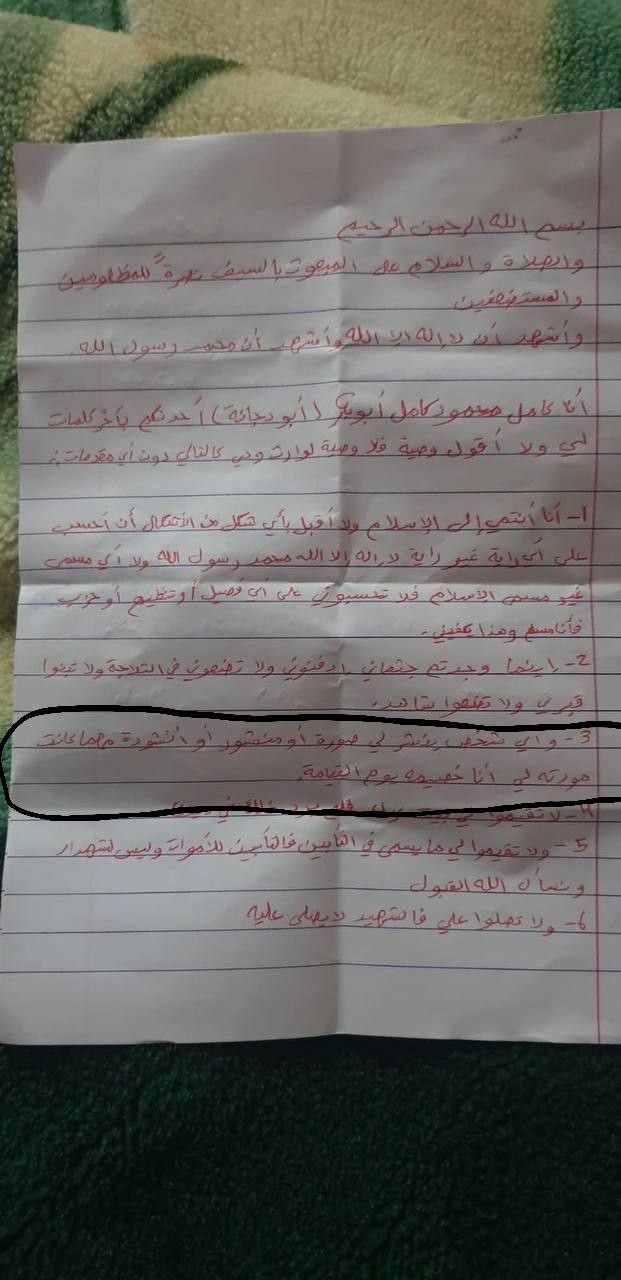 بسم الله الرحمن الرحيم
والصلاة والسلام على المبعوث بالسيف نصرةً للمظلومين
والمستضعفين
وأشهد أن لا إله إلا الله وأشهد أن محمد رسول الله
أنا كامل محمود كامل أبوبكر (أبو دجانة) أحدثكم بآخر كلمات
لي ولا أقول وصية فلا وصية لوارث وهي كالتالي دون أي مقدمات :
1- أنا أنتمي إلى الإسلام ولا أقبل بأي شكل من الأشكال أن أحسب
على أي راية غير راية لا إله إلا الله محمد رسول الله ولا أي مسمى
غير مسمى الإسلام فلا تحسبوني على أي فصيل أو تنظيم أو حزب
فأنا مسلم وهذا يكفيني.
2- إينما وجدتم جثماني إدفنوني ولا تضعوني في الثلاجة ولا تبنوا
قبري ولا تضعوا شاهد.
3- واي شخص ينشر لي صورة أو منشور أو أنشودة مهما كانت
مورته لي أنا خصيمه يوم القيامة.
4- لا تقيموا لي بيت
5- ولا تقيموا لي ما يسمى في التأبين فالتأبين للأموات وليس للشهداء
ونسأل الله القبول
6- ولا تصلوا علي فالشهيد لا يصلى عليه